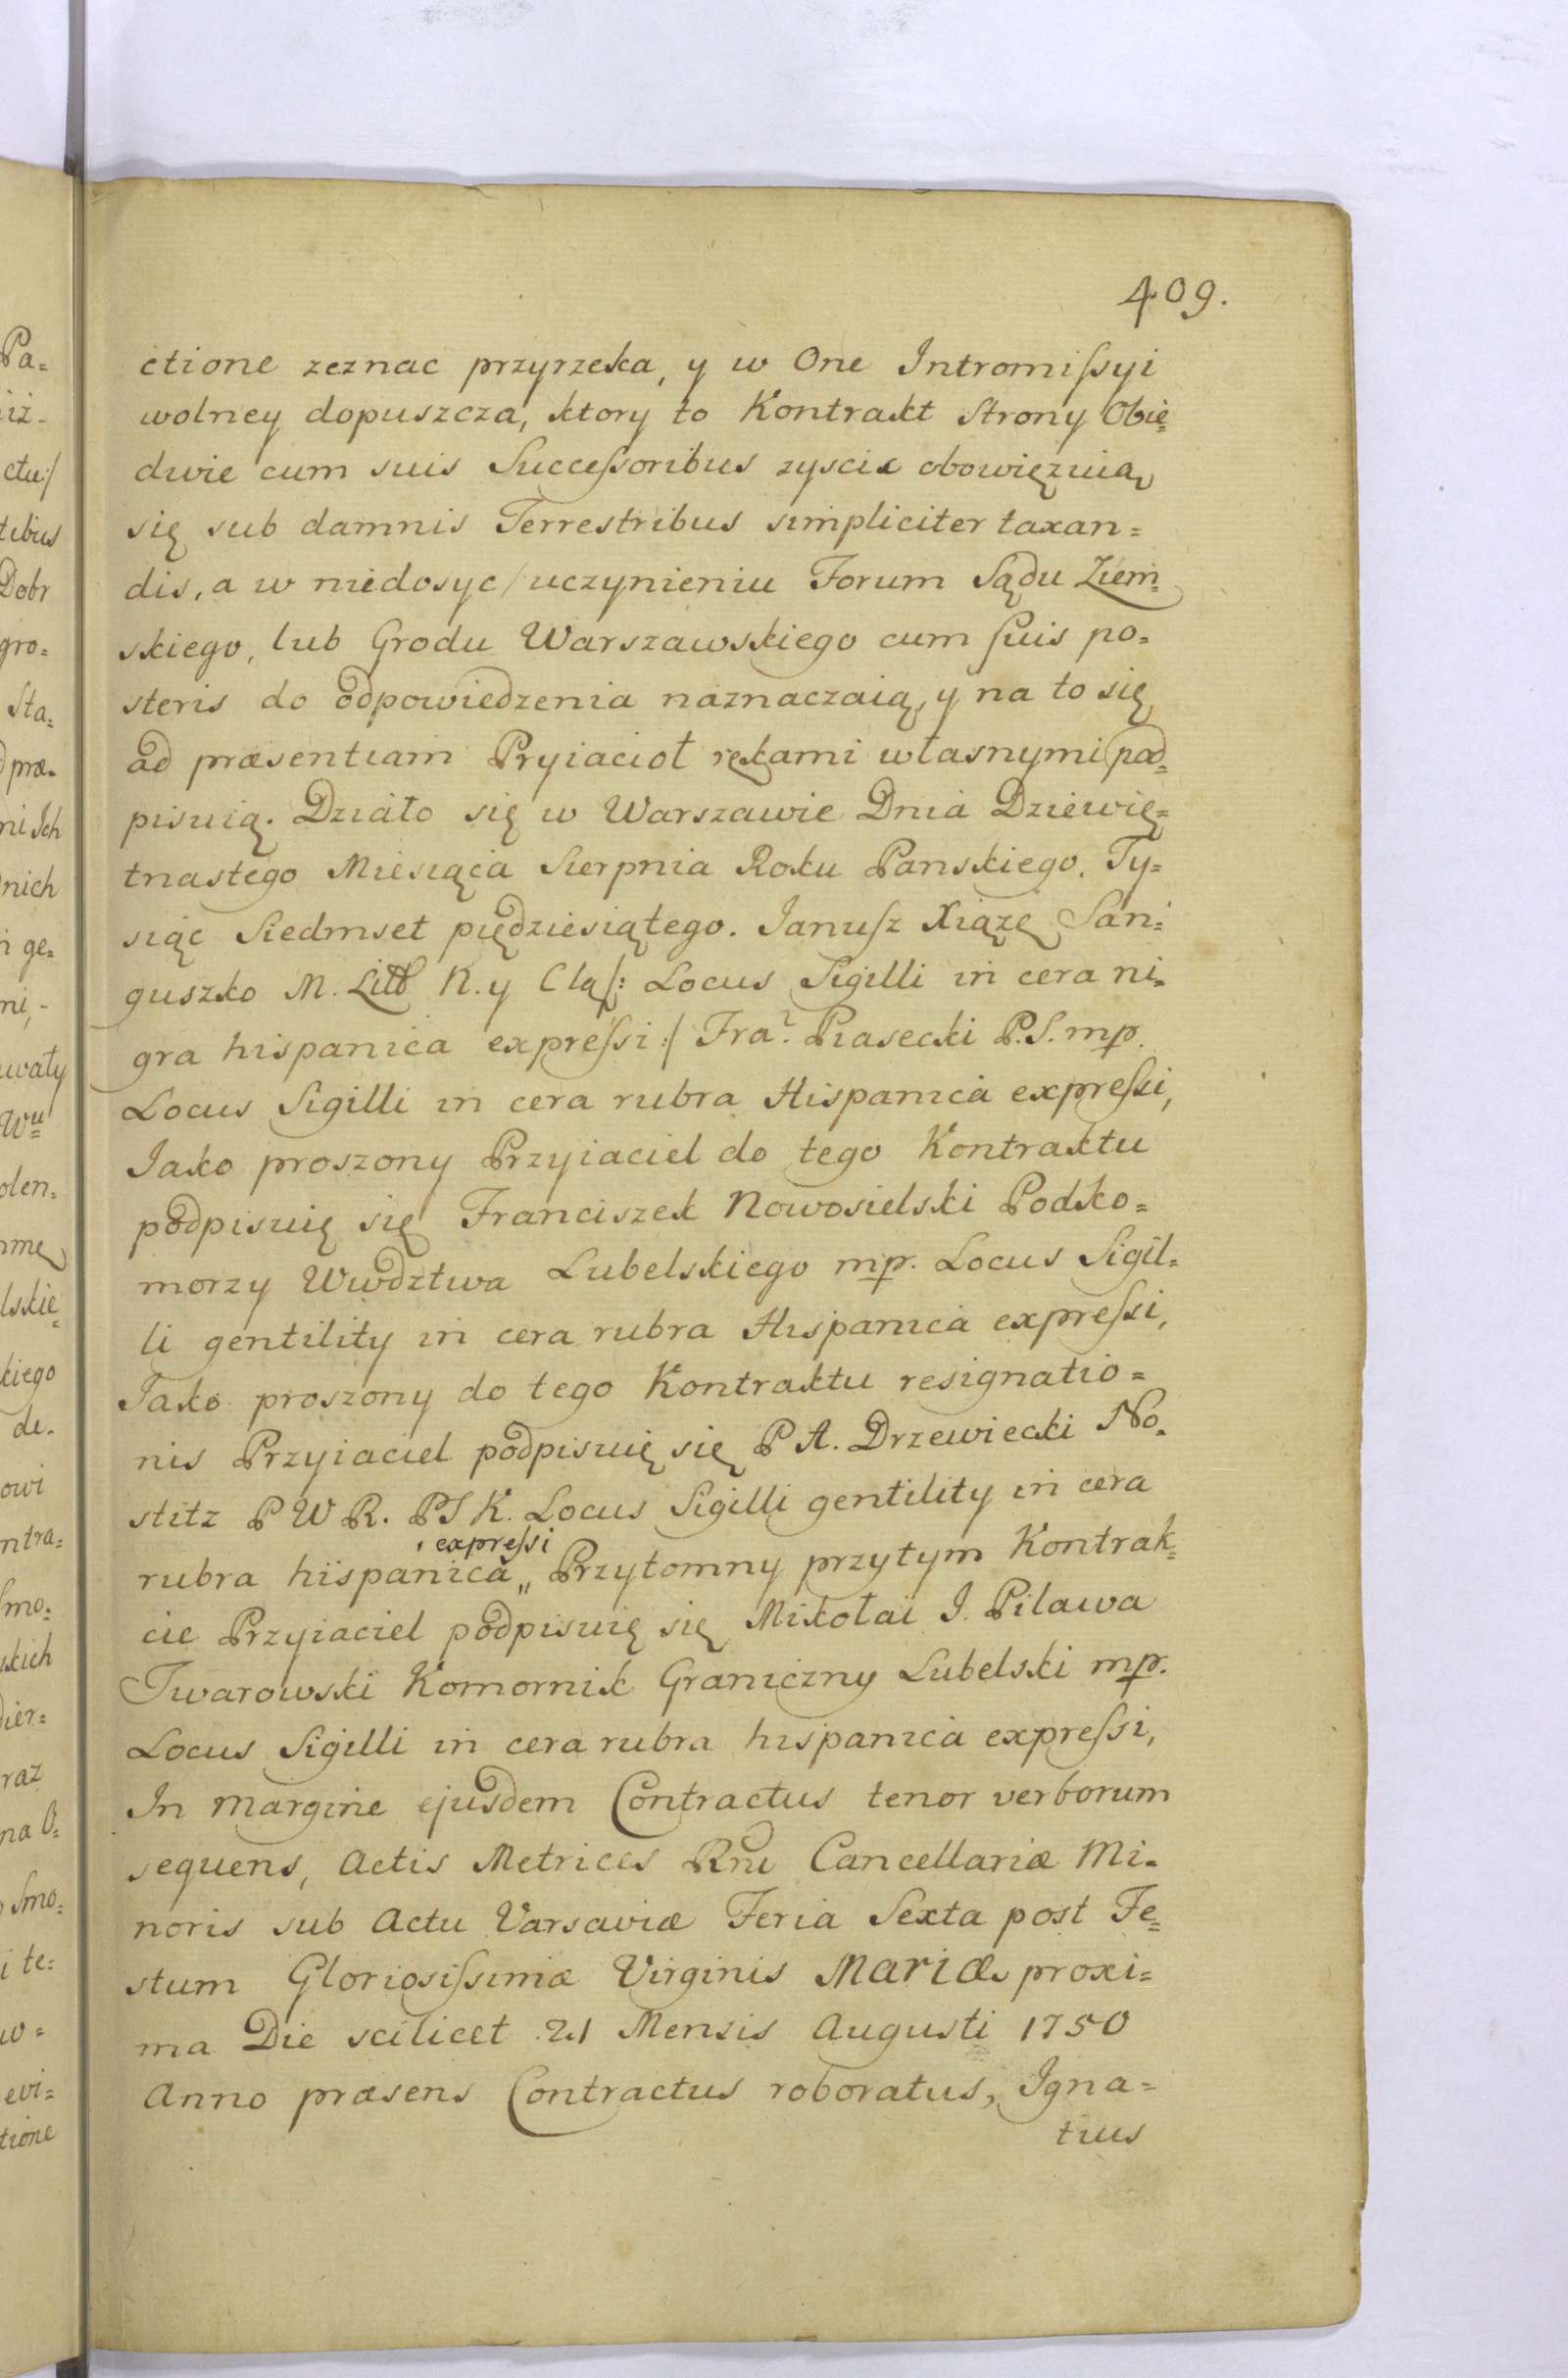 409.
ctione zeznac przyrzeka, y w One Intromiſsyi
wolney dopuszcza, ktory to Kontrakt Strony Obie=
dwie cum suis Succeſsoribus zyscic obowięzuią
się sub damnis Terrestribus simpliciter taxan=
dis, a w niedosyc/uczynieniu Forum Sądu Ziem=
skiego, lub Grodu Warszawskiego cum ſuis po=
steris do odpowiedzenia naznaczaią, y na to się
ad præsentiam Pryiacioł rękami własnymi pod=
pisuią. Działo się w Warszawie Dnia Dziewię=
tnastego Miesiąca Sierpnia Roku Panskiego. Ty=
siąc Siedmset piędziesiątego. Januſz Xiązę San=
guszko M. Litt K. y Claſ: Locus Sigilli in cera ni=
gra hispanica expreſsi:/ Fra. Piasecki P.S. mp.
Locus Sigilli in cera rubra Hispanica expreſsi,
Jako proszony Przyiaciel do tego Kontraktu
podpisuię się Franciszek Nowosielski Podko=
morzy Wwdztwa Lubelskiego mp. Locus Sigil=
li gentility in cera rubra Hispanica expreſsi,
Jako proszony do tego Kontraktu resignatio=
nis Przyiaciel podpisuię się P A. Drzewiecki No=
stitz P W R. PS K. Locus Sigilli gentility in cera
expreſsi
rubra hispanica„ Przytomny przytym Kontrak=
cie Przyiaciel podpisuię się Mikołai J. Pilawa
Twarowski Komornik Graniczny Lubelski mp.
Locus Sigilli in cera rubra hispanica expreſsi,
In margine ejusdem Contractus tenor verborum
sequens, Actis Metrices Rni Cancellariæ Mi=
noris sub Actu Varsaviæ Feria Sexta post Fe=
stum Gloriosiſsimæ Virginis Mariæ proxi=
ma Die scilicet 21 Mensis Augusti 1750
Anno præsens Contractus roboratus, Igna=
tius